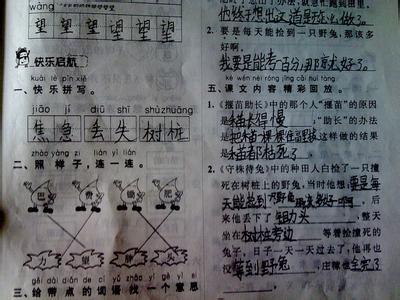 wàng
望 望 望 望 望 望
快乐启航
kuài lè pīn xiě
一、快乐拼写。
jiāo jí diū shī shù zhuāng
焦 急 丢 失 树 桩
zhào yàng zi lián yì lián
二、照样子，连一连。
三、给带点的词语找一个意思
他终于想出这道题怎么做了。
2. 要是每天能捡到一只野兔，那该多
好啊。
我要是能考百分，那高太好了。
kè wén nèi róng jīng cǎi huí fàng
五、课文内容精彩回放。
1.《揠苗助长》中的那个人“揠苗”的原因
是禾苗长得慢，“助长”的办法
是把禾苗一棵棵往高拔这样做的结果
是禾苗都枯死了。
2.《守株待兔》中的种田人白捡了一只撞
死在树桩上的野兔，当时他想：要是每
天能捡到
来他丢下了锄头，整天
坐在树桩旁边等着捡撞死的
兔子，日子一天一天过去了，他再也
没等到野兔，庄稼他全完了。